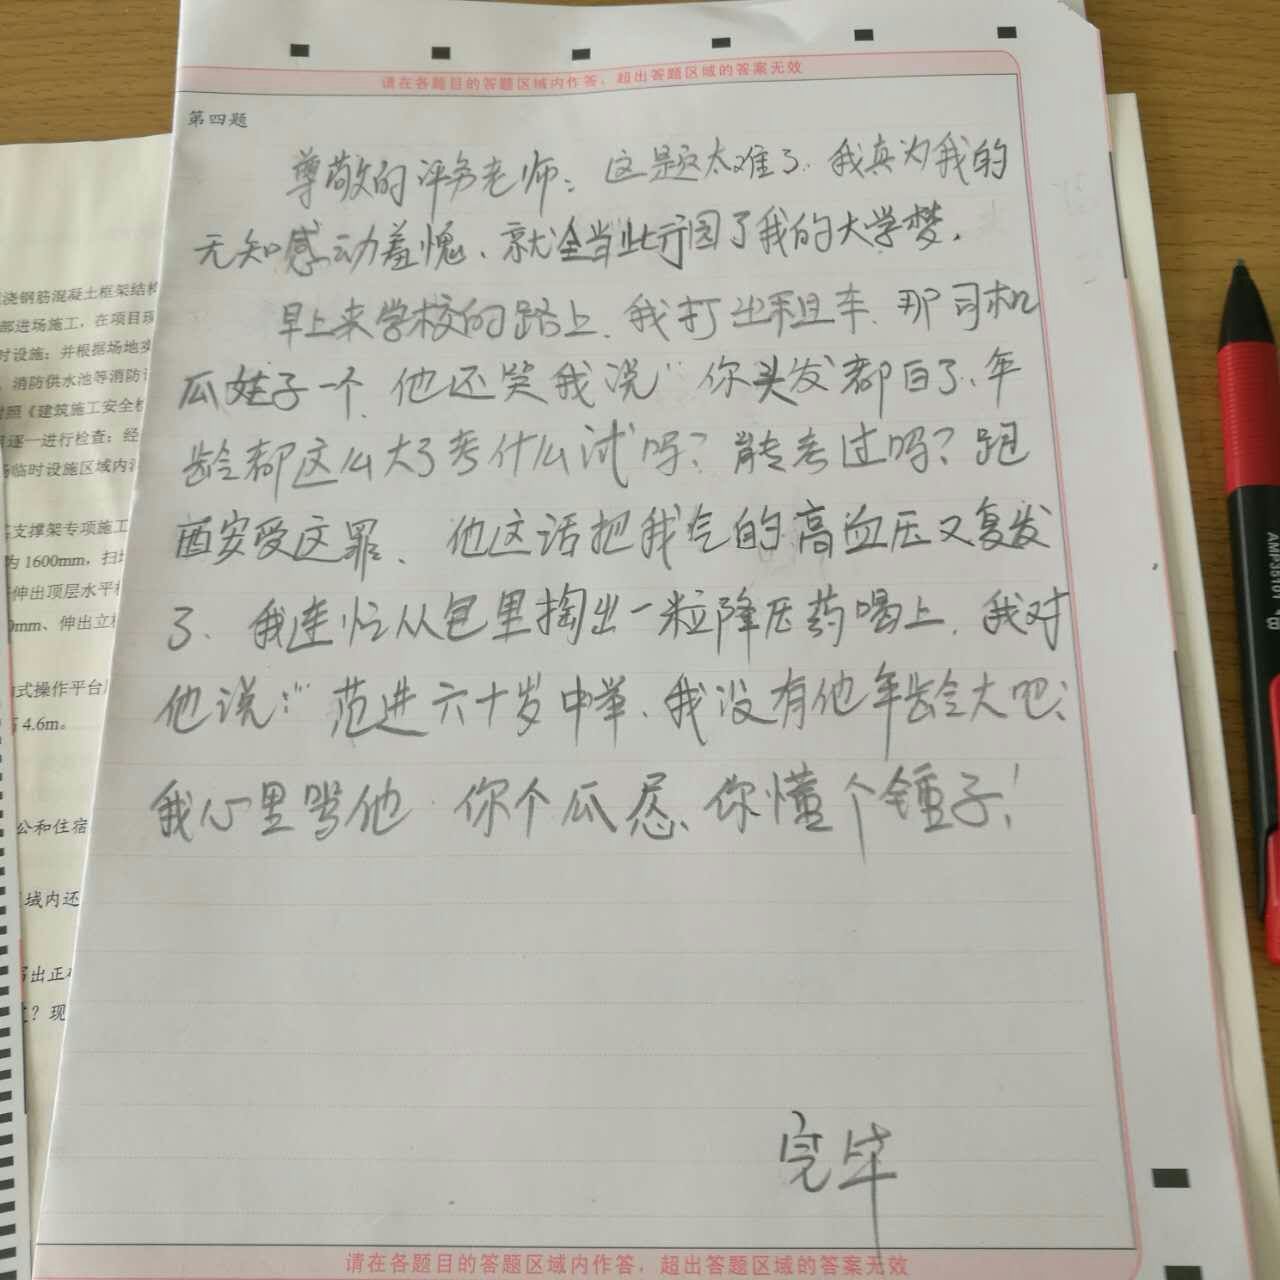 请在各题目的答题区域内作答，超出答题区域的答案无效
第四题
尊敬的评务老师：这是这太难了．我真为我的
无知感动羞愧、就全当此行圆了我的大学梦．
早上来学校的路上、我打出租车、那司机
瓜娃子一个、他还笑我说“你头发都白了、年
龄都这么大了考什么试吗？能考过吗？跑
西安受这罪、他这话把我气的高血压又复发
了、我连忙从包里掏出一粒降压药喝上．我对
他说：“范进六十岁中举、我没有他年龄大吧、
我心里骂他 你个瓜 、你懂个锤子！
完毕
请在各题目的答题区域内作答，超出答题区域的答案无效
浇钢筋混凝土框架结构
部进场施工，在项目现
时设施；并根据场地实
、消防供水池等消防
对照《建筑施工安全检
逐一进行检查；经
临时设施区域内
支撑架专项施工
为1600mm，扫
伸出顶层水平
0mm、伸出立杆
式操作平台
4.6m。
公和住宿
区域内还
写出正确
？现
AMP35101